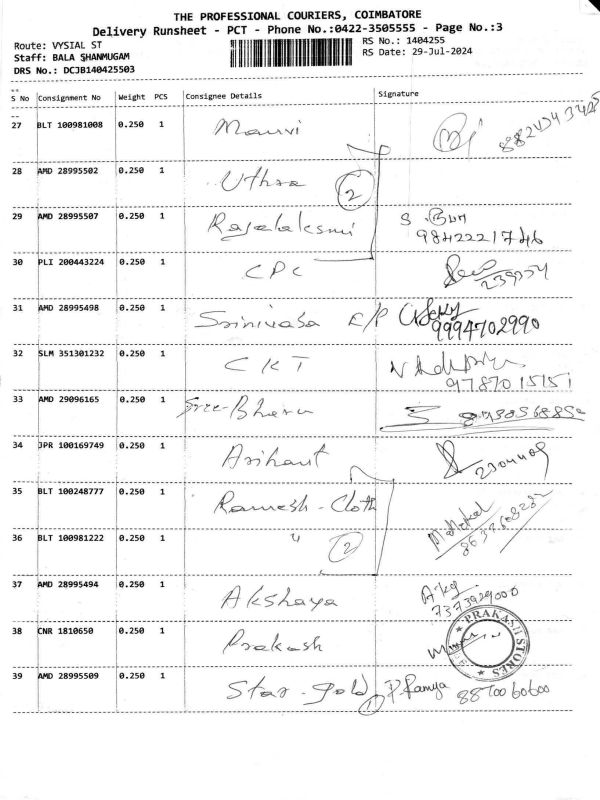 THE PROFESSIONAL COURIERS, COIMBATORE
Delivery Runsheet - PCT - Phone No.:0422-3505555 - Page No.:3
Route: VYSIAL ST RS No.: 1404255
Staff: BALA SHANMUGAM RS Date: 29-Jul-2024
DRS No.: DCJB140425503
S No Consignment No Weight PCS Consignee Details Signature
27 BLT 100981008 0.250 1
28 AMD 28995502 0.250 1 Uthra 2
29 AMD 28995507 0.250 1 Rajalaksmi
9842221746
30 PLI 200443224 0.250 1 CPC
239254
31 AMD 28995498 0.250 1 Srinivasa E/P
9994702990
32 SLM 351301232 0.250 1 CKT
9787015151
33 AMD 29096165 0.250 1 Sree-
34 JPR 100169749 0.250 1 Arihant
35 BLT 100248777 0.250 1 Ramesh-Cloth
36 BLT 100981222 0.250 1 " 2
37 AMD 28995494 0.250 1 Akshaya
7373929000
38 CNR 1810650 0.250 1 Prakash
PRAKASH STORES
39 AMD 28995509 0.250 1 Star-gold 1 P. Ramya 8870060600